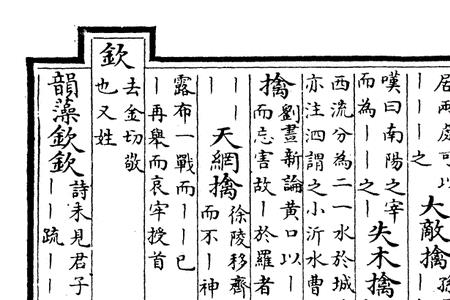 居兩處可以
丨丨之
大敵擒
嘆曰南陽之宰
而為丨丨之丨
失木擒
西流分為二一水於城
亦注泗謂之小沂水曹
擒
劉晝新論黃口以丨
而忘害故丨於羅者
丨丨
丨丨
天網擒
徐陵移齊
而不丨神
露布一戰而丨丨已
丨再舉而哀牢授首
欽
去金切敬
也又姓
韻藻欽欽
詩未見君子
丨丨疏丨丨